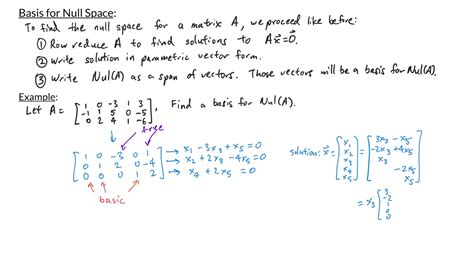 Basis for Null Space:
To find the null space for a matrix A, we proceed like before:
① Row reduce A to find solutions to Ax⃗=0⃗.
② Write solution in parametric vector form.
③ Write Nul(A) as a span of vectors. Those vectors will be a basis for Nul(A).
Example:
Let A = [1 0 -3 1 3
-1 1 5 0 -5
0 2 4 1 -6]. Find a basis for Nul(A).
free
[1 0 -3 0 1 → x₁ - 3x₃ + x₅ = 0
0 1 2 0 -4 → x₂ + 2x₃ - 4x₅ = 0
0 0 0 1 2] → x₄ + 2x₅ = 0
basic
solution: x⃗ = [x₁ x₂ x₃ x₄ x₅] = [3x₃ - x₅
-2x₃ + 4x₅
x₃
-2x₅
x₅]
= x₃ [3
-2
1
0
0]